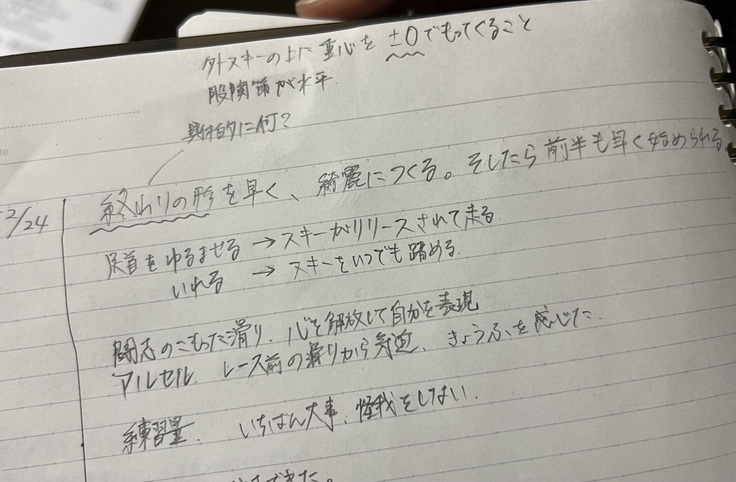 外スキーの上に重心を±0でもってくること
股関節が水平
具体的に何?
2/24
終わりの形を早く、綺麗につくる。そしたら前半も早く始められる
足首をゆるませる → スキーがリリースされて走る
いれる → スキーをいつでも踏める
闘志のこもった滑り、心を解放して自分を表現
アルセル レース前の滑りから気迫、きょうふを感じた、
練習量、いちばん大事、怪我をしない、
できた。